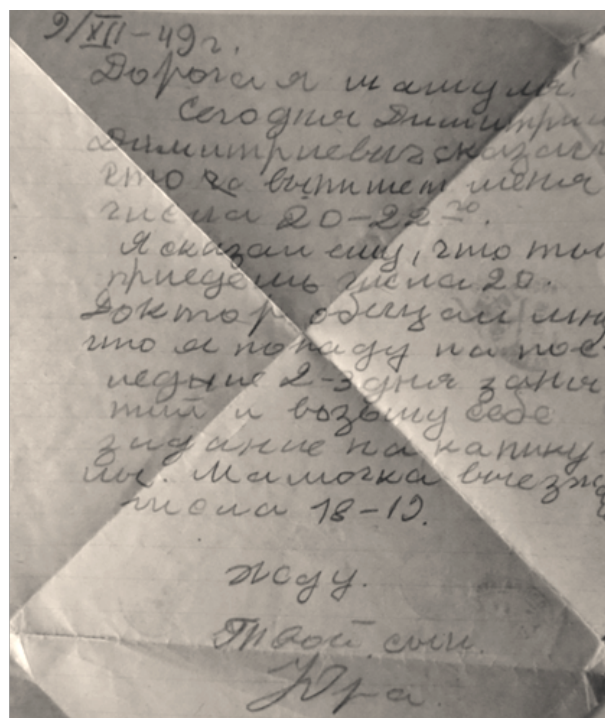 9/XII-49 г.
Дорогая мамуля!
Сегодня Димитрий
Димитриевич сказал
что выпишет меня
числа 20-22го.
Я сказал ему, что ты
приедешь числа 20.
Доктор обещал мне
что я попаду на пос-
ледние 2-3 дня заня
тий и возьму себе
зидание на каникул
лы. Мамочка выезжа
числа 18-19.
жду.
Твой сын.
Юра.